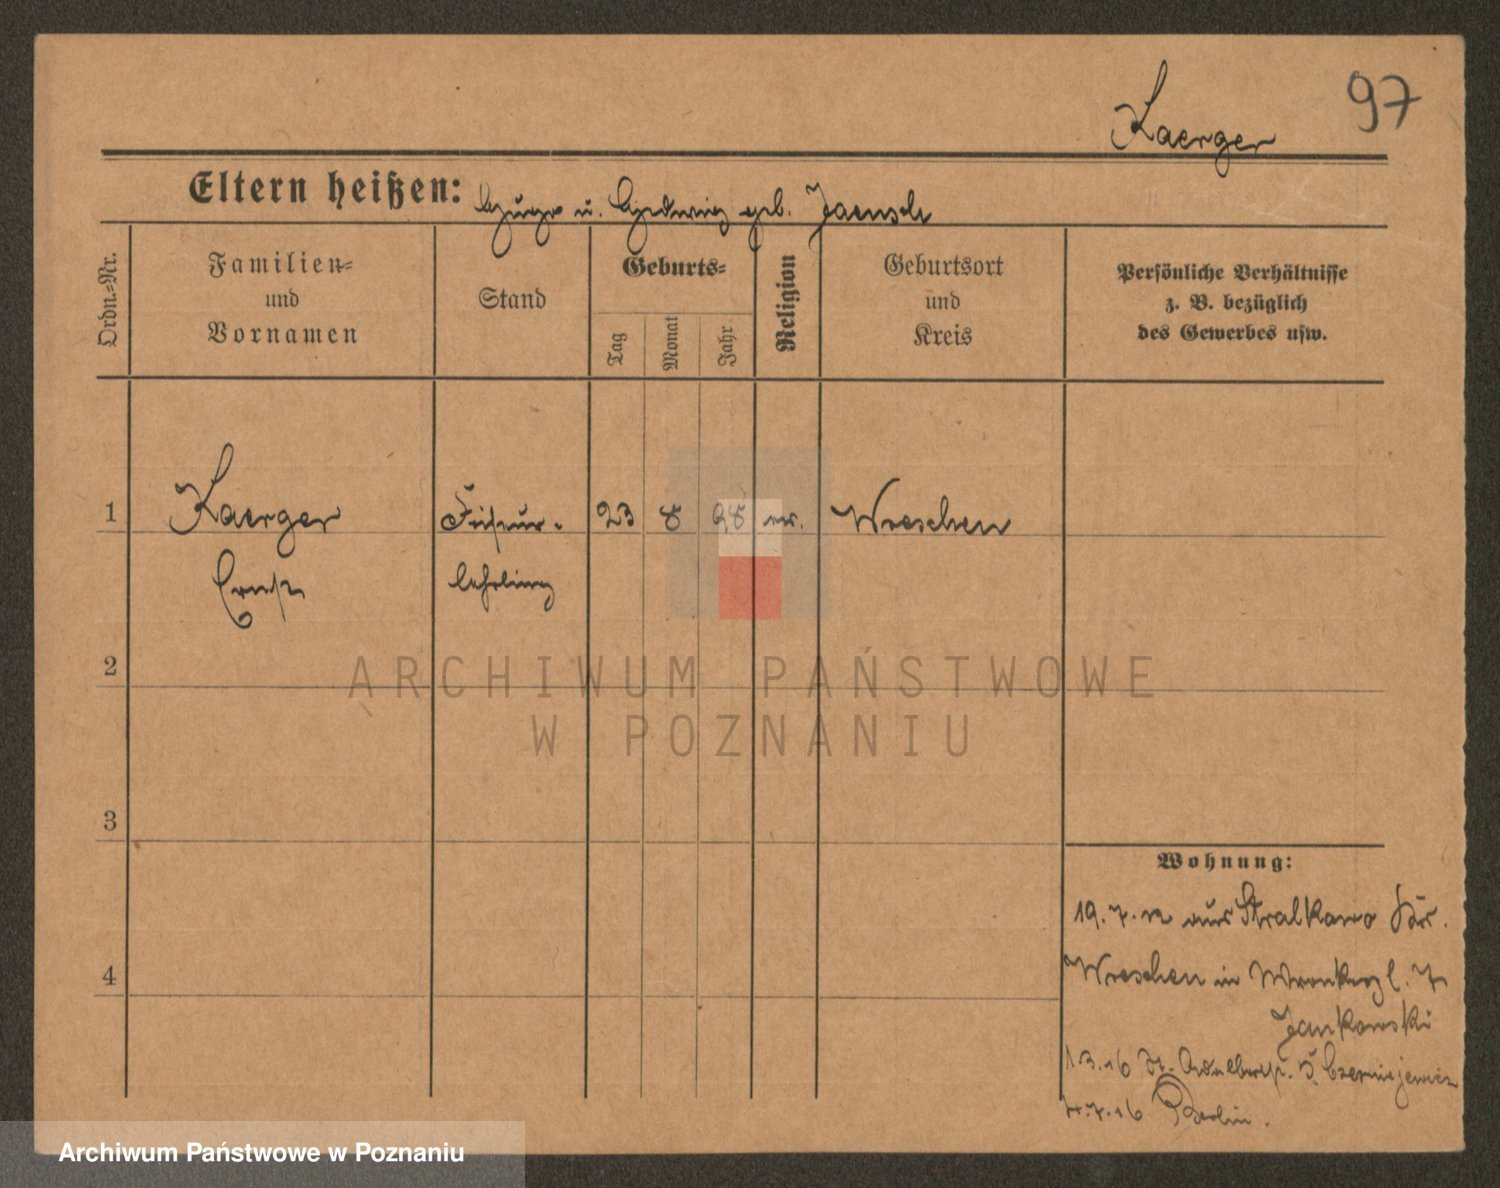 97
Kaerger
Eltern heißen: u. Hedwig geb. Jaensch
Ordn.-Nr.
Familien-
und
Vornamen
Stand
Geburts-
Tag
Monat
Jahr
Religion
Geburtsort
und
Kreis
Persönliche Verhältnisse
z. B. bezüglich
des Gewerbes usw.
1
Kaerger
Friseur-
23
8
98
ev.
Wreschen
Ernst
lehrling
2
ARCHIWUM PAŃSTWOWE
W POZNANIU
3
Wohnung:
19.7.12 aus Stralkowo Kr.
4
Wreschen in Wronkerpl. 7
Jankowski
1.3.16 St. Adalbertstr. 5 Czerniejewicz
7.16 Berlin.
Archiwum Państwowe w Poznaniu